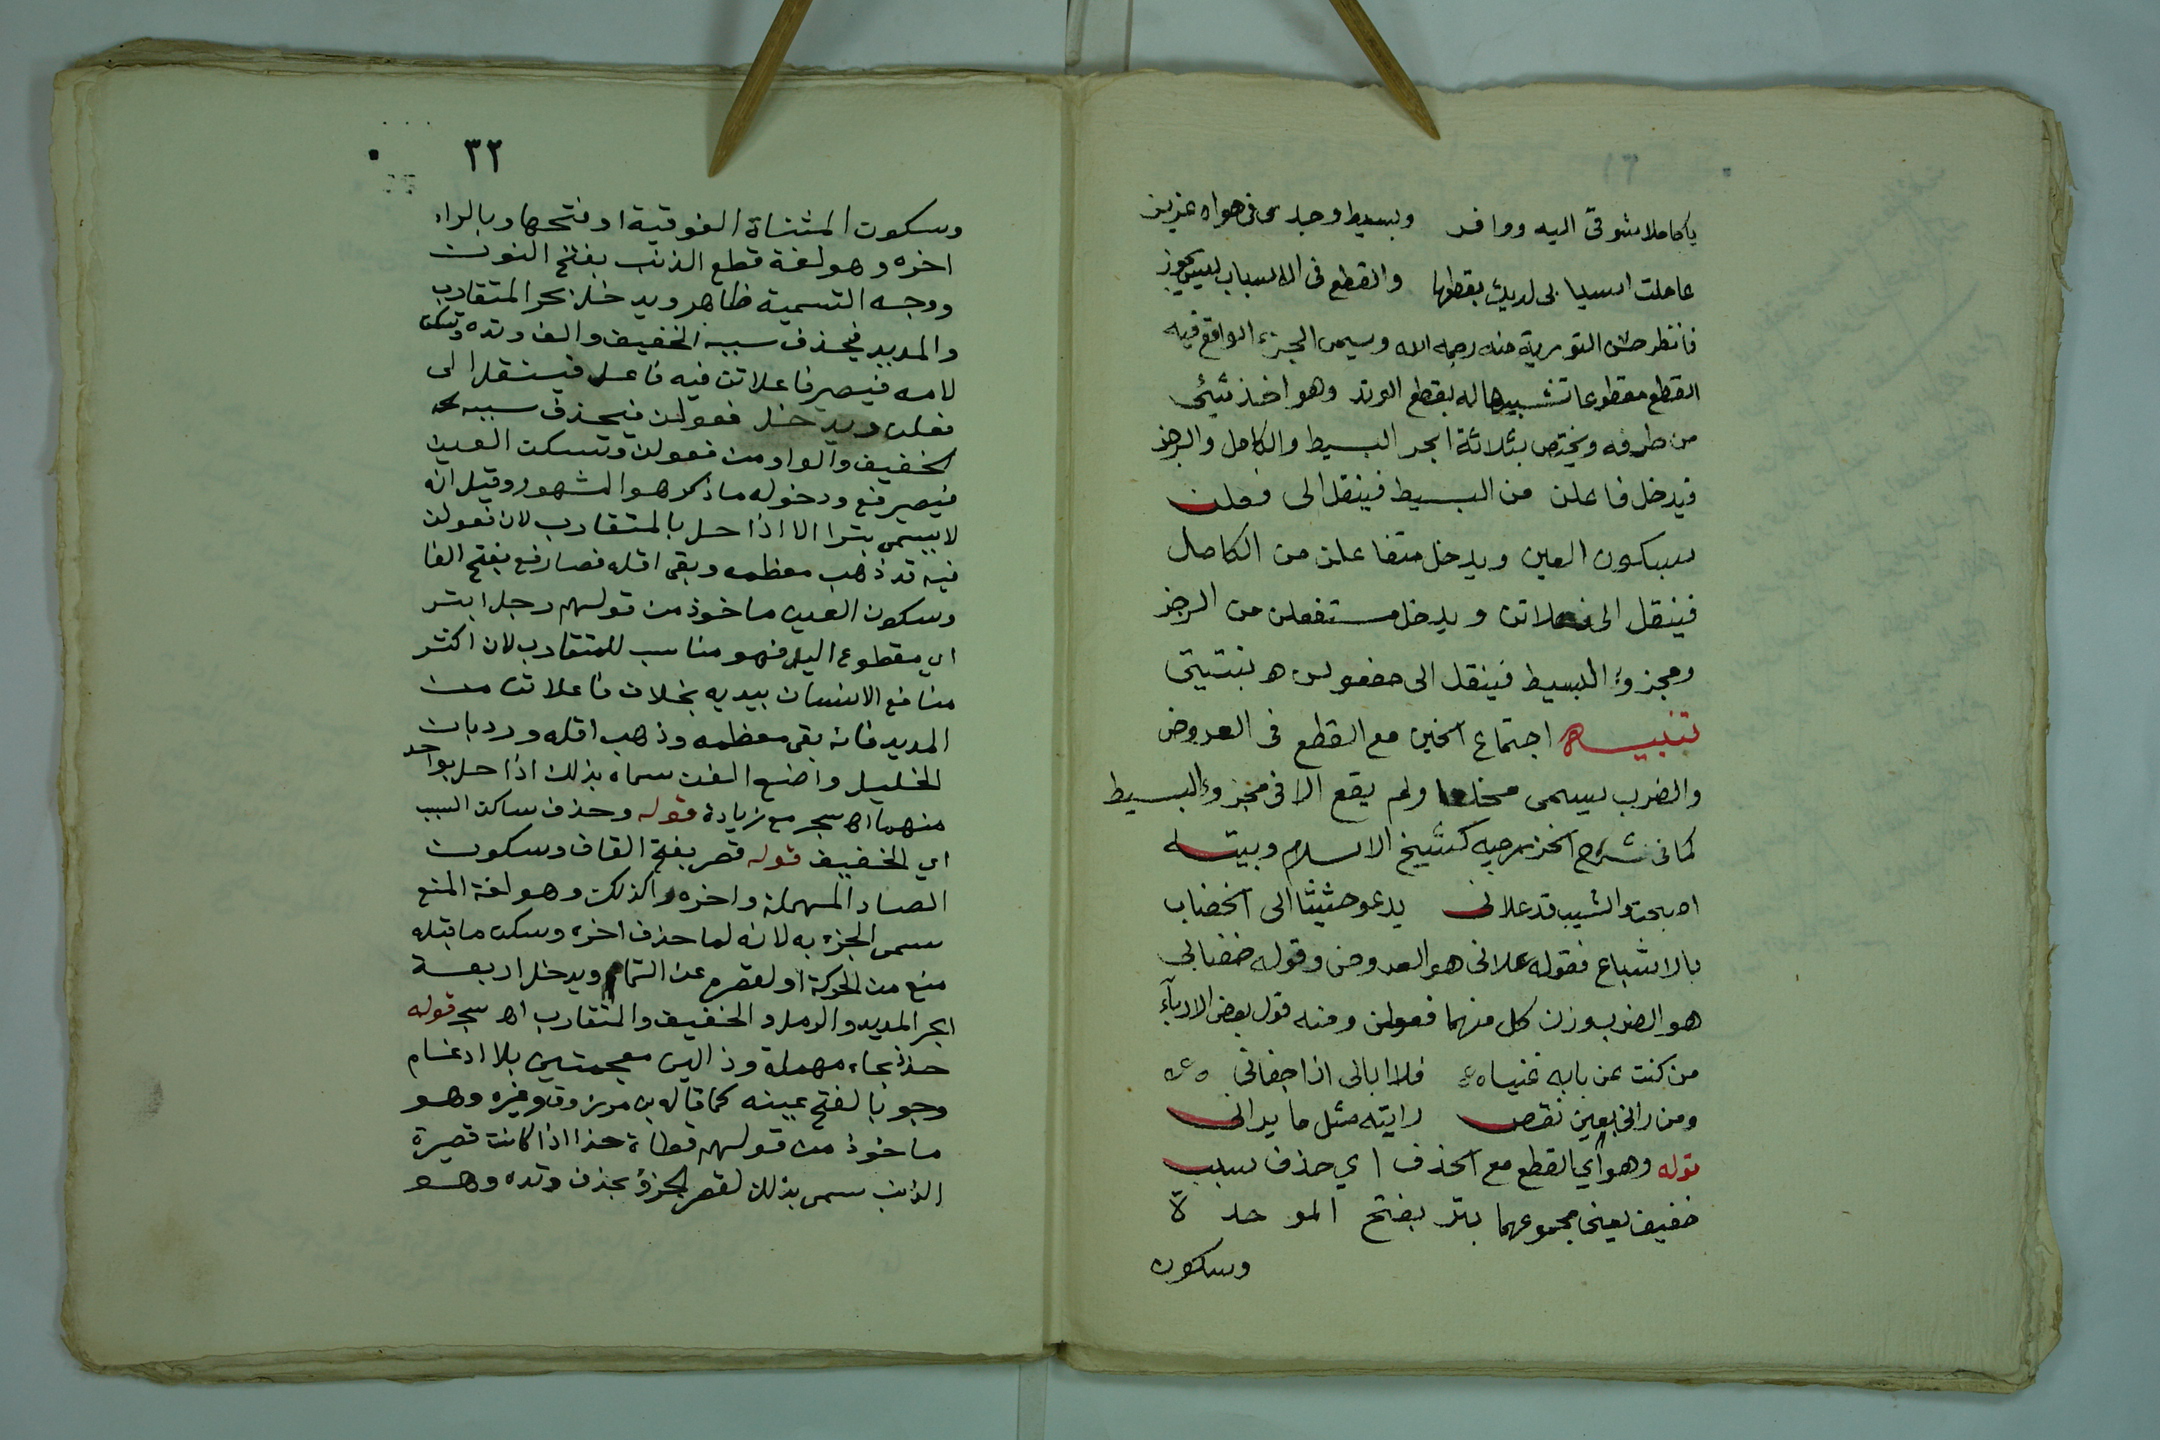 يا كاملا شوقي اليه ووافر وبسيط وجدي في هواه عزيز
عاملت اسبابي لديك بقطعها والقطع في الاسباب ليس يجوز
فانظر حسن التورية منه رحمه الله ويسمى الجزء الواقع فيه
القطع مقطوعا تشبيها له بقطع الوتد وهو اخذ شيئ
من طرفه ويختص بثلاثة ابحر البسيط والكامل والرجز
فيدخل فاعلن من البسيط فينقل الى فعلن
بسكون العين ويدخل متفاعلن من الكامل
فينقل الى فعلاتن ويدخل مستفعلن من الرجز
ومجزوء البسيط فينقل الى مفعولن ه بنتيتي
تنبيه اجتماع الخبن مع القطع في العروض
والضرب يسمى مخلعا ولم يقع الا في مجزوء البسيط
كما في شروح الخزرجيه كشيخ الاسلام وبيته
اصبحت والشيب قد علاني يدعو حثيثا الى الخضاب
بالاشباع فقوله علاني هو العروض وقوله خضابي
هو الضرب وزن كل منهما فعولن ومنه قول بعض الادباء
من كنت عن بابه غنيا فلا ابالي اذا جفاني
ومن راني بعين نقص رايته مثل ما يراني
قوله وهو اي القطع مع الحذف اي حذف سبب
خفيف يعني مجموعهما بتر بفتح الموحدة
وسكون
٣٢
وسكون المثناة الفوقية او فتحها وبالراء
اخره وهو لغة قطع الذنب بفتح النون
ووجه التسمية ظاهر ويدخل بحر المتقارب
والمديد فيحذف سببه الخفيف والف وتده وتسكن
لامه فيصير فاعلاتن فيه فاعل فينقل الى
فعلن ويدخل فعولن فيحذف سببه
الخفيف والواو من فعولن وتسكن العين
فيصير فع ودخوله ما ذكر هو المشهور وقيل انه
لا يسمى بترا الا اذا حل بالمتقارب لان فعولن
فيه قد ذهب معظمه وبقى اقله فصار فع بفتح الفا
وسكون العين ماخوذ من قولهم رجل ابتر
اي مقطوع اليد فهو مناسب للمتقارب لان اكثر
منافع الانسان بيديه بخلاف فاعلاتن من
المديد فانه بقى معظمه وذهب اقله ورد بان
الخليل واضع الفن سماه بذلك اذا حل بواحد
منهما اه سجر مع زيادة قوله وحذف ساكن السبب
اي الخفيف قوله قصر بفتح القاف وسكون
الصاد المهملة واخره راكذلك وهو لغة المنع
سمى الجزء به لانه لما حذف اخره وسكن ما قبله
منع من الحركة او لقصره عن التمام ويدخل اربعة
ابحر المديد والرمل والخفيف والمتقارب اه سجر قوله
حذذ بحاء مهملة وذالين معجمتين بلا ادغام
وجوبا لفتح عينه كما قاله بن مرزوق وغيره وهو
ماخوذ من قولهم قطاة حذا اذا كانت قصيرة
الذنب سمى بذلك لقصر الجزؤ بحذف وتده وهو